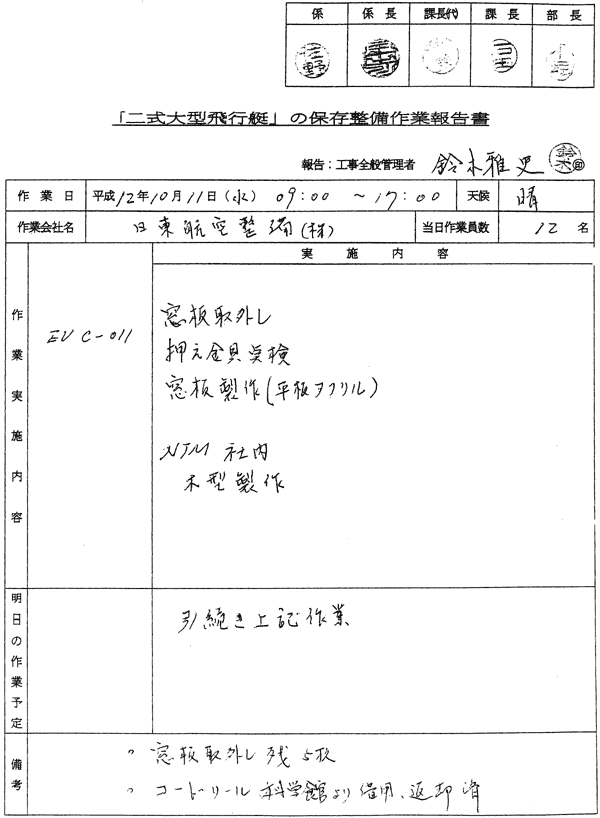 係 係長 課長代 課長 部長
佐野
「二式大型飛行艇」の保存整備作業報告書
報告:工事全般管理者 鈴木雅史 鈴木
作業日 平成12年10月11日(水) 09:00 ~17:00 天候 晴
作業会社名 日東航空整備(株) 当日作業員数 12 名
実施内容
作業実施内容
EV C-011 窓板取外し
押え金具点検
窓板製作(平板アクリル)
NJM 社内
木型製作
明日の作業予定 引続き上記作業
備考
・窓板取外し残5枚
・コードリール科学館より借用、返却済